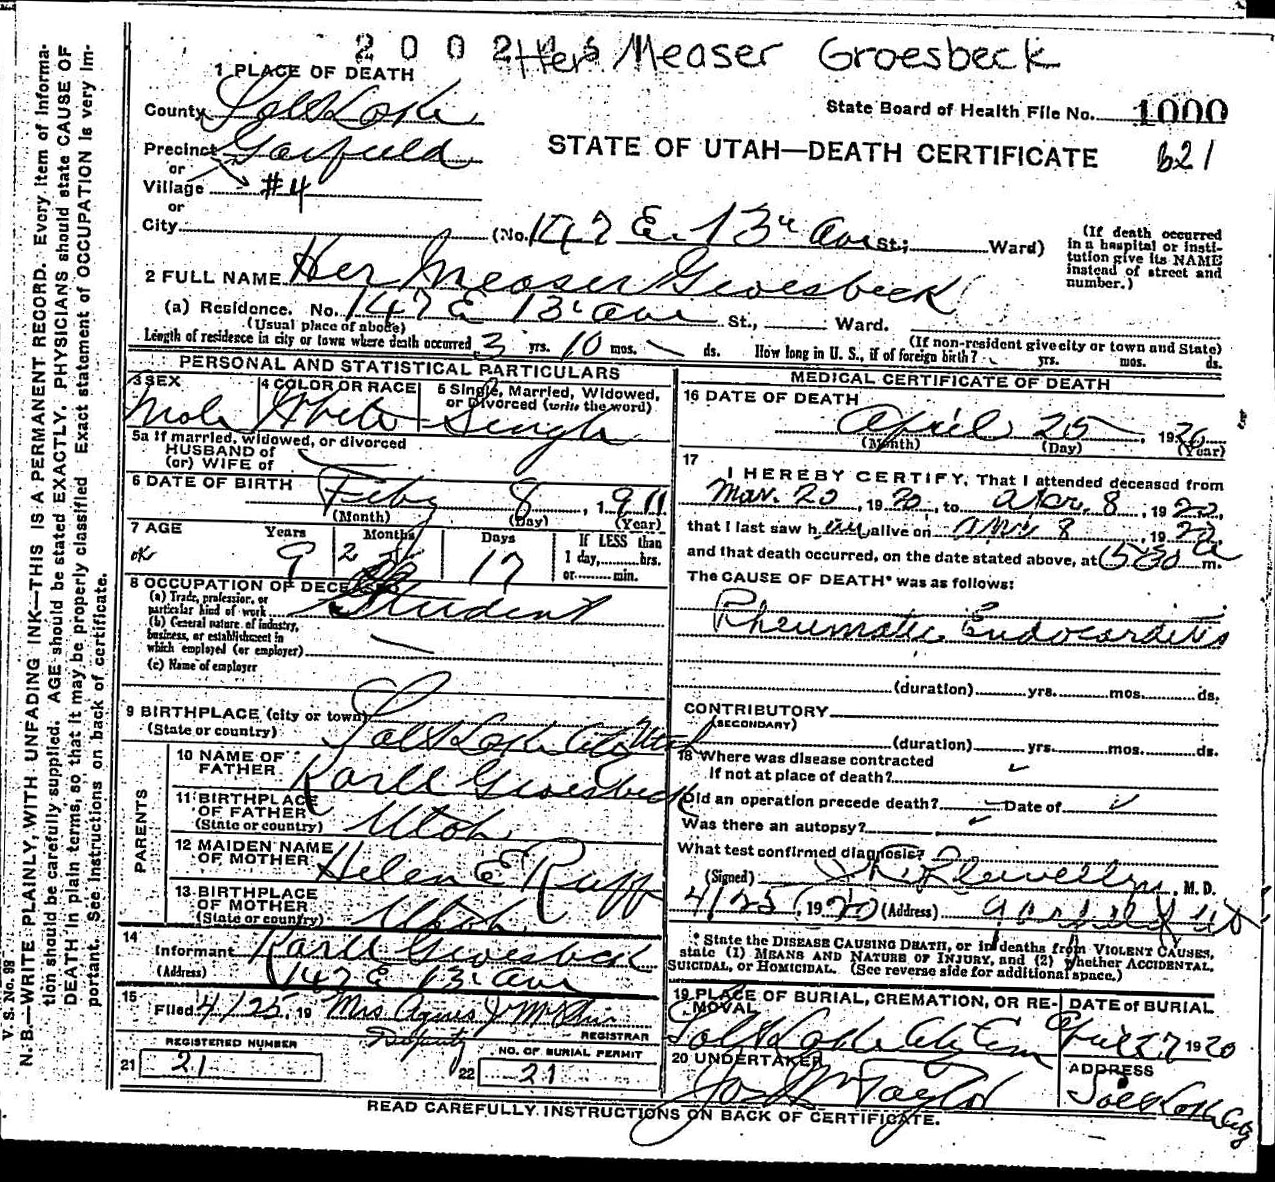 2 0 0 2
Her Measer Groesbeck
1 PLACE OF DEATH
County Salt Lake
State Board of Health File No. 1000
Precinct Garfield
STATE OF UTAH—DEATH CERTIFICATE 621
or
Village #4
or
City (No. 147 E. 13" Ave St.; Ward)
(If death occurred in a hospital or institution give its NAME instead of street and number.)
2 FULL NAME Her Measer Groesbeck
(a) Residence. No. 147 E 13 Ave St., Ward.
(Usual place of abode) (If non-resident give city or town and State)
Length of residence in city or town where death occurred 3 yrs. 10 mos. ds. How long in U. S., if of foreign birth? yrs. mos. ds.
PERSONAL AND STATISTICAL PARTICULARS
3 SEX Male
4 COLOR OR RACE White
5 Single, Married, Widowed, or Divorced (write the word) Single
5a If married, widowed, or divorced
HUSBAND of
(or) WIFE of
6 DATE OF BIRTH Feby 8, 1911
(Month) (Day) (Year)
7 AGE Years Months Days If LESS than
9 2 17 1 day, hrs.
or min.
8 OCCUPATION OF DECEASED
(a) Trade, profession, or
particular kind of work Student
(b) General nature of industry,
business, or establishment in
which employed (or employer)
(c) Name of employer
9 BIRTHPLACE (city or town)
(State or country) Salt Lake City Utah
PARENTS
10 NAME OF FATHER Karll Groesbeck
11 BIRTHPLACE OF FATHER
(State or country) Utah
12 MAIDEN NAME OF MOTHER Helen E Ruff
13 BIRTHPLACE OF MOTHER
(State or country) Utah
14
Informant Karll Groesbeck
(Address) 147 E 13 Ave
15
Filed 4/25, 19 Mrs Agnes J
REGISTRAR
Deputy
21 REGISTERED NUMBER 21
22 NO. OF BURIAL PERMIT 21
MEDICAL CERTIFICATE OF DEATH
16 DATE OF DEATH
April 25, 1920
(Month) (Day) (Year)
17
I HEREBY CERTIFY, That I attended deceased from
Mar. 20, 1920, to Apr. 8, 1920,
that I last saw him alive on Apr. 8, 1920
and that death occurred, on the date stated above, at 5:30 a m.
The CAUSE OF DEATH* was as follows:
Rheumatic Endocarditis
(duration) yrs. mos. ds.
CONTRIBUTORY
(SECONDARY)
(duration) yrs. mos. ds.
18 Where was disease contracted
if not at place of death?
Did an operation precede death? Date of
Was there an autopsy?
What test confirmed diagnosis?
(Signed) Llewellyn, M. D.
4/25, 1920 (Address) Garfield Ut
* State the DISEASE CAUSING DEATH, or in deaths from VIOLENT CAUSES,
state (1) MEANS AND NATURE OF INJURY, and (2) whether ACCIDENTAL,
SUICIDAL, or HOMICIDAL. (See reverse side for additional space.)
19 PLACE OF BURIAL, CREMATION, OR REMOVAL
Salt Lake City Cem
DATE of BURIAL
April 27 1920
20 UNDERTAKER
Jos Wm Taylor
ADDRESS
Salt Lake City
READ CAREFULLY INSTRUCTIONS ON BACK OF CERTIFICATE.
V. S. No. 98
N. B.—WRITE PLAINLY, WITH UNFADING INK—THIS IS A PERMANENT RECORD. Every item of information should be carefully supplied. AGE should be stated EXACTLY. PHYSICIANS should state CAUSE OF DEATH in plain terms, so that it may be properly classified. Exact statement of OCCUPATION is very important. See instructions on back of certificate.